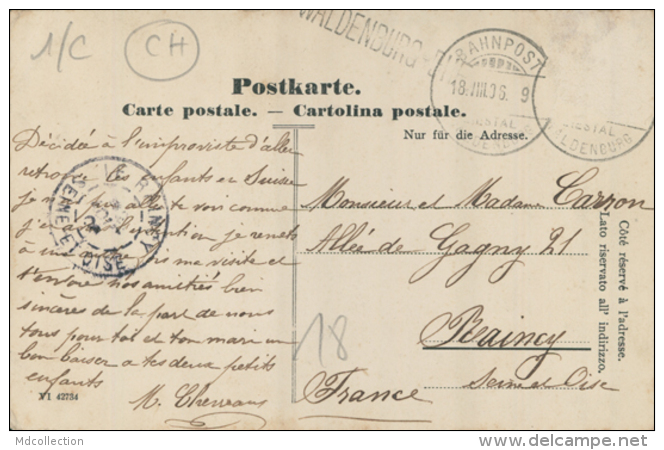 1/C
CH
WALDENBURG
BAHNPOST
18.VIII.06. 9
LIESTAL
WALDENBURG
Postkarte.
Carte postale. — Cartolina postale.
Nur für die Adresse.
Décidée à l'improviste d'aller
retrouver les enfants en Suisse
je n'ai pu aller te voir comme
j'en avais l'intention je remets
à mon ma visite et
t'envoie nos amitiés bien
sincères de la part de nous
tous pour toi et ton mari un
bon baiser a tes deux petits
enfants
M.
LE RAINCY
SEINE ET OISE
Monsieur et Madame Carron
Allée de Gagny 21
Raincy
Seine et Oise
France
18
Côté réservé à l'adresse.
Lato riservato all' indirizzo.
VI 42734
Mdcollection
www.delcampe.net